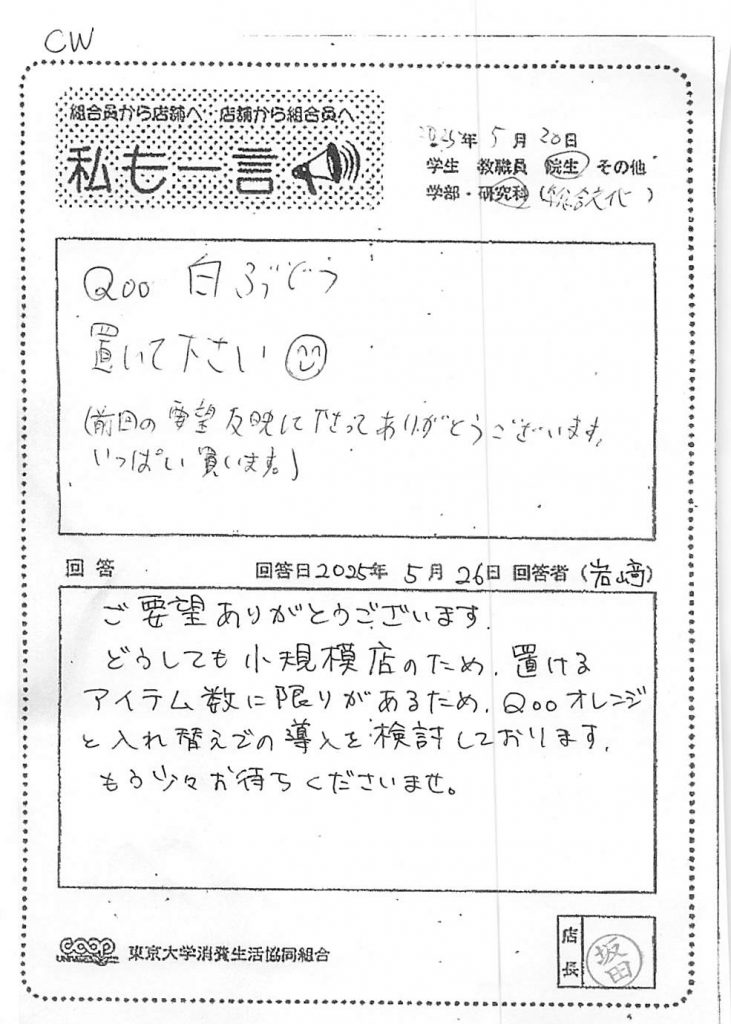 CW
組合員から店舗へ 店舗から組合員へ
私も一言
2025年 5月 20日
学生 教職員 院生 その他
学部・研究科 (総合文化)
Qoo 白ぶどう
置いて下さい
(前回の要望反映して下さってありがとうございます。
いっぱい買います。)
回答 回答日2025年 5月 26日 回答者 (岩﨑)
ご要望ありがとうございます。
どうしても小規模店のため、置ける
アイテム数に限りがあるため、Qooオレンジ
と入れ替えでの導入を検討しております。
もう少々お待ちくださいませ。
coop 東京大学消費生活協同組合
店長 坂田